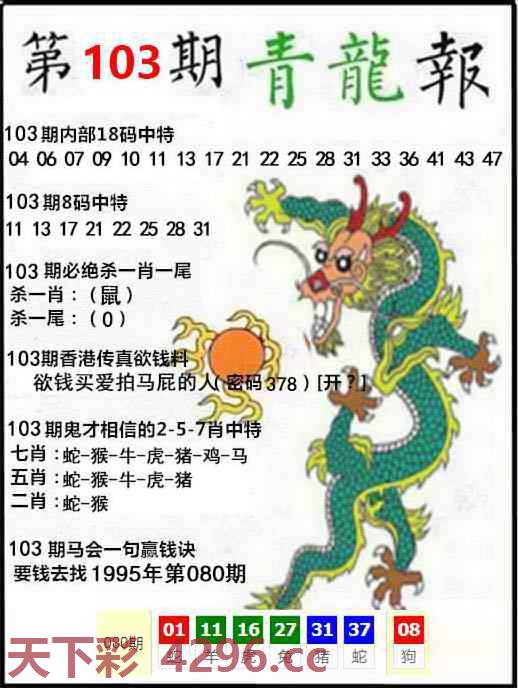 第103期 青龍報
103期内部18码中特
04 06 07 09 10 11 13 17 21 22 25 28 31 33 36 41 43 47
103期8码中特
11 13 17 21 22 25 28 31
103期必绝杀一肖一尾
杀一肖：（鼠）
杀一尾：（0）
103期香港传真欲钱料
欲钱买爱拍马屁的人(密码378)[开?]
103期鬼才相信的2-5-7肖中特
七肖：蛇-猴-牛-虎-猪-鸡-马
五肖：蛇-猴-牛-虎-猪
二肖：蛇-猴
103期马会一句赢钱诀
要钱去找1995年第080期
080期 01 11 16 27 31 37 08
蛇 羊 虎 兔 猪 蛇 狗
天下彩 4296.cc